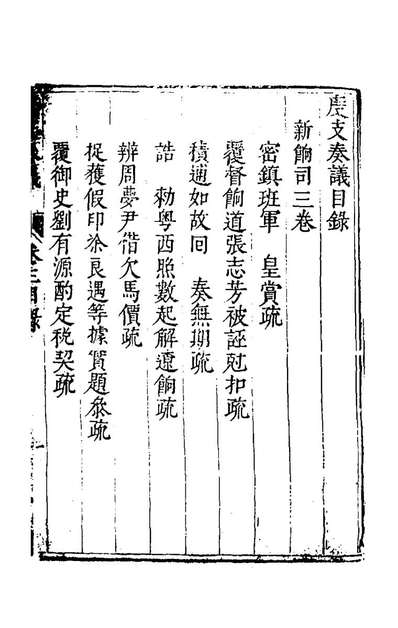 度支奏議目錄
新餉司三卷
密鎮班軍 皇賞疏
覆督餉道張志芳被誣尅扣疏
積逋如故回 奏無期疏
請 勑粵西照數起解遼餉疏
辨周夢尹借欠馬價疏
捉獲假印余良遇等據實題參疏
覆御史劉有源酌定稅契疏
卷三目錄